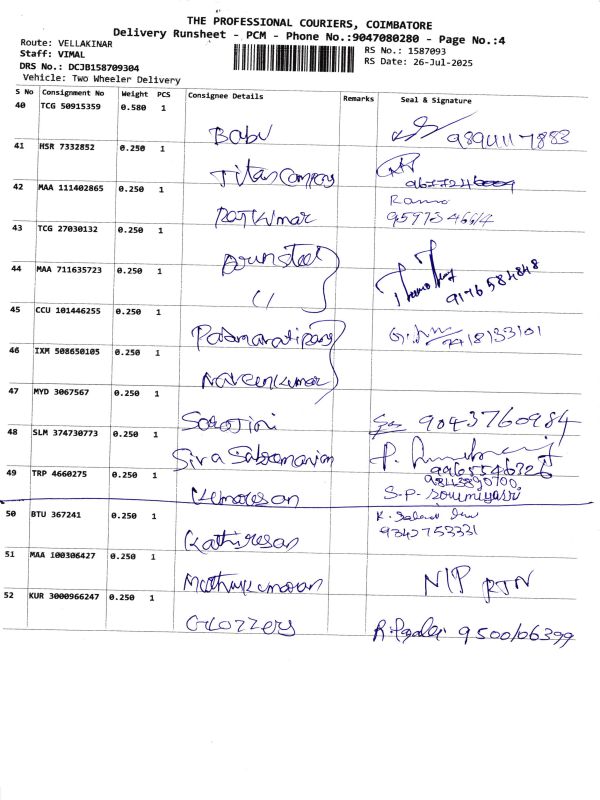 THE PROFESSIONAL COURIERS, COIMBATORE
Delivery Runsheet - PCM - Phone No.:9047080280 - Page No.:4
Route: VELLAKINAR
Staff: VIMAL
DRS No.: DCJB158709304
Vehicle: Two Wheeler Delivery
RS No.: 1587093
RS Date: 26-Jul-2025
S No Consignment No Weight PCS Consignee Details Remarks Seal & Signature
40 TCG 50915359 0.580 1 Babu 9894117883
41 HSR 7332852 0.250 1 Titan Company
42 MAA 111402865 0.250 1 Rajkumar
43 TCG 27030132 0.250 1
44 MAA 711635723 0.250 1 9176584848
45 CCU 101446255 0.250 1
46 IXM 508650105 0.250 1 Naveenkumar
47 MYD 3067567 0.250 1 Sarojini 9043760984
48 SLM 374730773 0.250 1 Siva Subramaniam 9965546326
49 TRP 4660275 0.250 1 Kumaresan 9843890700 S.P. Soumiyasri
50 BTU 367241 0.250 1 Kathiresan 9342753331
51 MAA 100306427 0.250 1 Muthukumaran N/P RTN
52 KUR 3000966247 0.250 1 Glozzers 9500106399